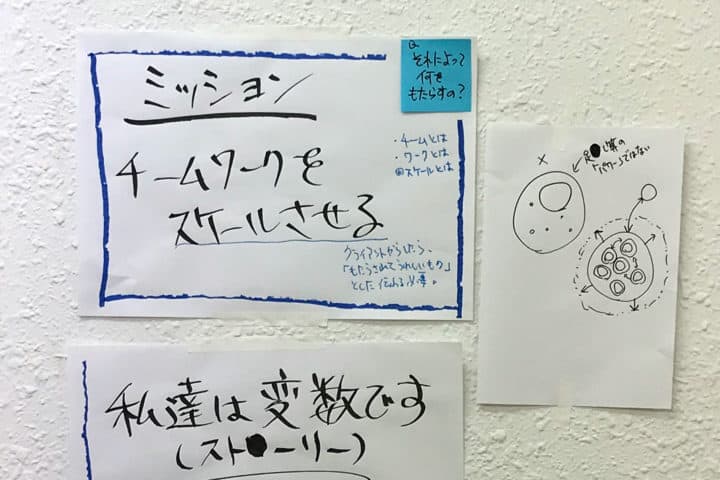 ミッション
チームワークを
スケールさせる
Q.
それによって
何を
もたらすの?
・チームとは
・ワークとは
スケールとは
クライアントからしたら、
「もたらされてうれしいもの」
とした伝わる必要。
足し算の
「パワー」ではない
私達は変数です
(ストーリー)